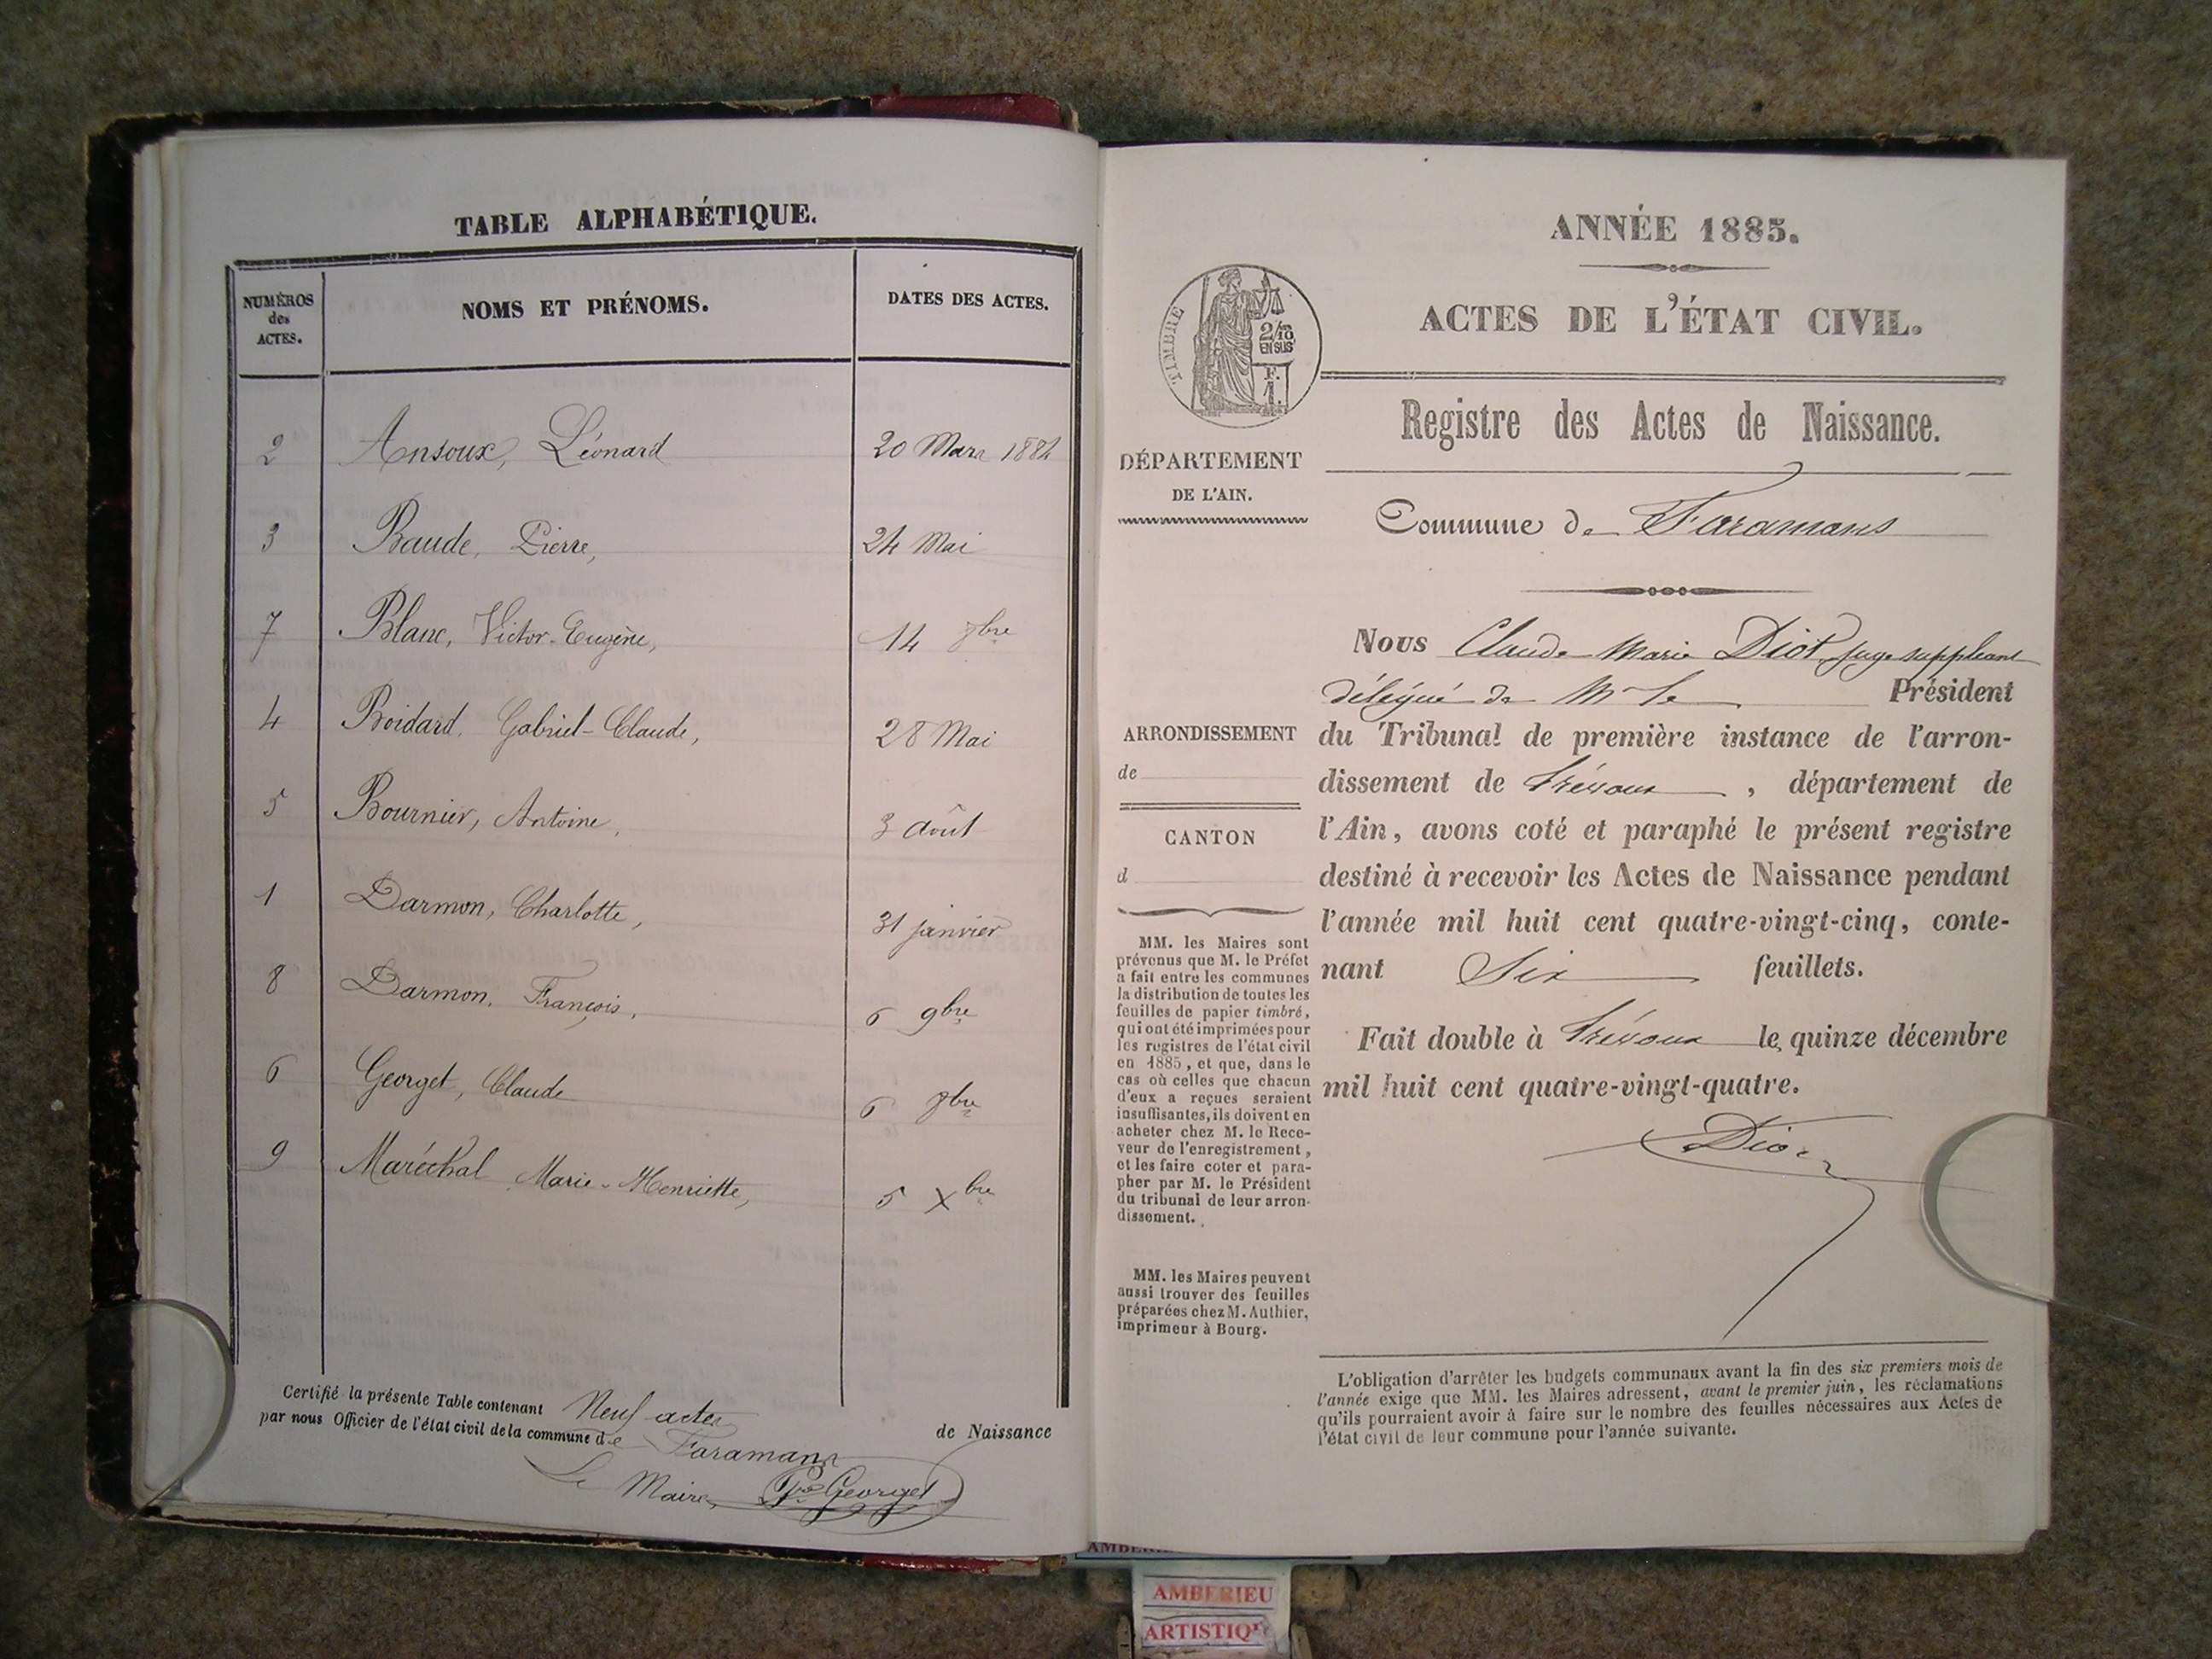 TABLE ALPHABÉTIQUE.
NUMÉROS des ACTES. NOMS ET PRÉNOMS. DATES DES ACTES.
2 Ansoux, Léonard 20 Mars 1884
3 Baude, Pierre, 24 Mai
7 Blanc, Victor-Eugène, 14 7bre
4 Boidard, Gabriel-Claude, 28 Mai
5 Bournier, Antoine, 3 août
1 Darmon, Charlotte, 31 janvier
8 Darmon, François, 6 9bre
6 Georget, Claude 6 7bre
9 Maréchal Marie-Henriette, 5 Xbre
Certifié la présente Table contenant Neuf actes de Naissance
par nous Officier de l'état civil de la commune de Faramans
Le Maire, Georget
ANNÉE 1885.
ACTES DE L'ÉTAT CIVIL.
TIMBRE
2/10
EN SUS
F.
1.
Registre des Actes de Naissance.
DÉPARTEMENT
DE L'AIN.
Commune de Faramans
Nous Claude Marie Diot juge suppléant
délégué de Mr le Président
du Tribunal de première instance de l'arron-
dissement de Trévoux, département de
l'Ain, avons coté et paraphé le présent registre
destiné à recevoir les Actes de Naissance pendant
l'année mil huit cent quatre-vingt-cinq, conte-
nant Six feuillets.
Fait double à Trévoux le quinze décembre
mil huit cent quatre-vingt-quatre.
Diot
ARRONDISSEMENT
de
CANTON
d
MM. les Maires sont
prévenus que M. le Préfet
a fait entre les communes
la distribution de toutes les
feuilles de papier timbré,
qui ont été imprimées pour
les registres de l'état civil
en 1885, et que, dans le
cas où celles que chacun
d'eux a reçues seraient
insuffisantes, ils doivent en
acheter chez M. le Rece-
veur de l'enregistrement,
et les faire coter et para-
pher par M. le Président
du tribunal de leur arron-
dissement.
MM. les Maires peuvent
aussi trouver des feuilles
préparées chez M. Authier,
imprimeur à Bourg.
L'obligation d'arrêter les budgets communaux avant la fin des six premiers mois de
l'année exige que MM. les Maires adressent, avant le premier juin, les réclamations
qu'ils pourraient avoir à faire sur le nombre des feuilles nécessaires aux Actes de
l'état civil de leur commune pour l'année suivante.
AMBERIEU
ARTISTIQUE